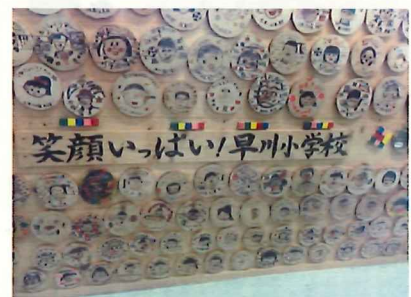 笑顔いっぱい!早川小学校